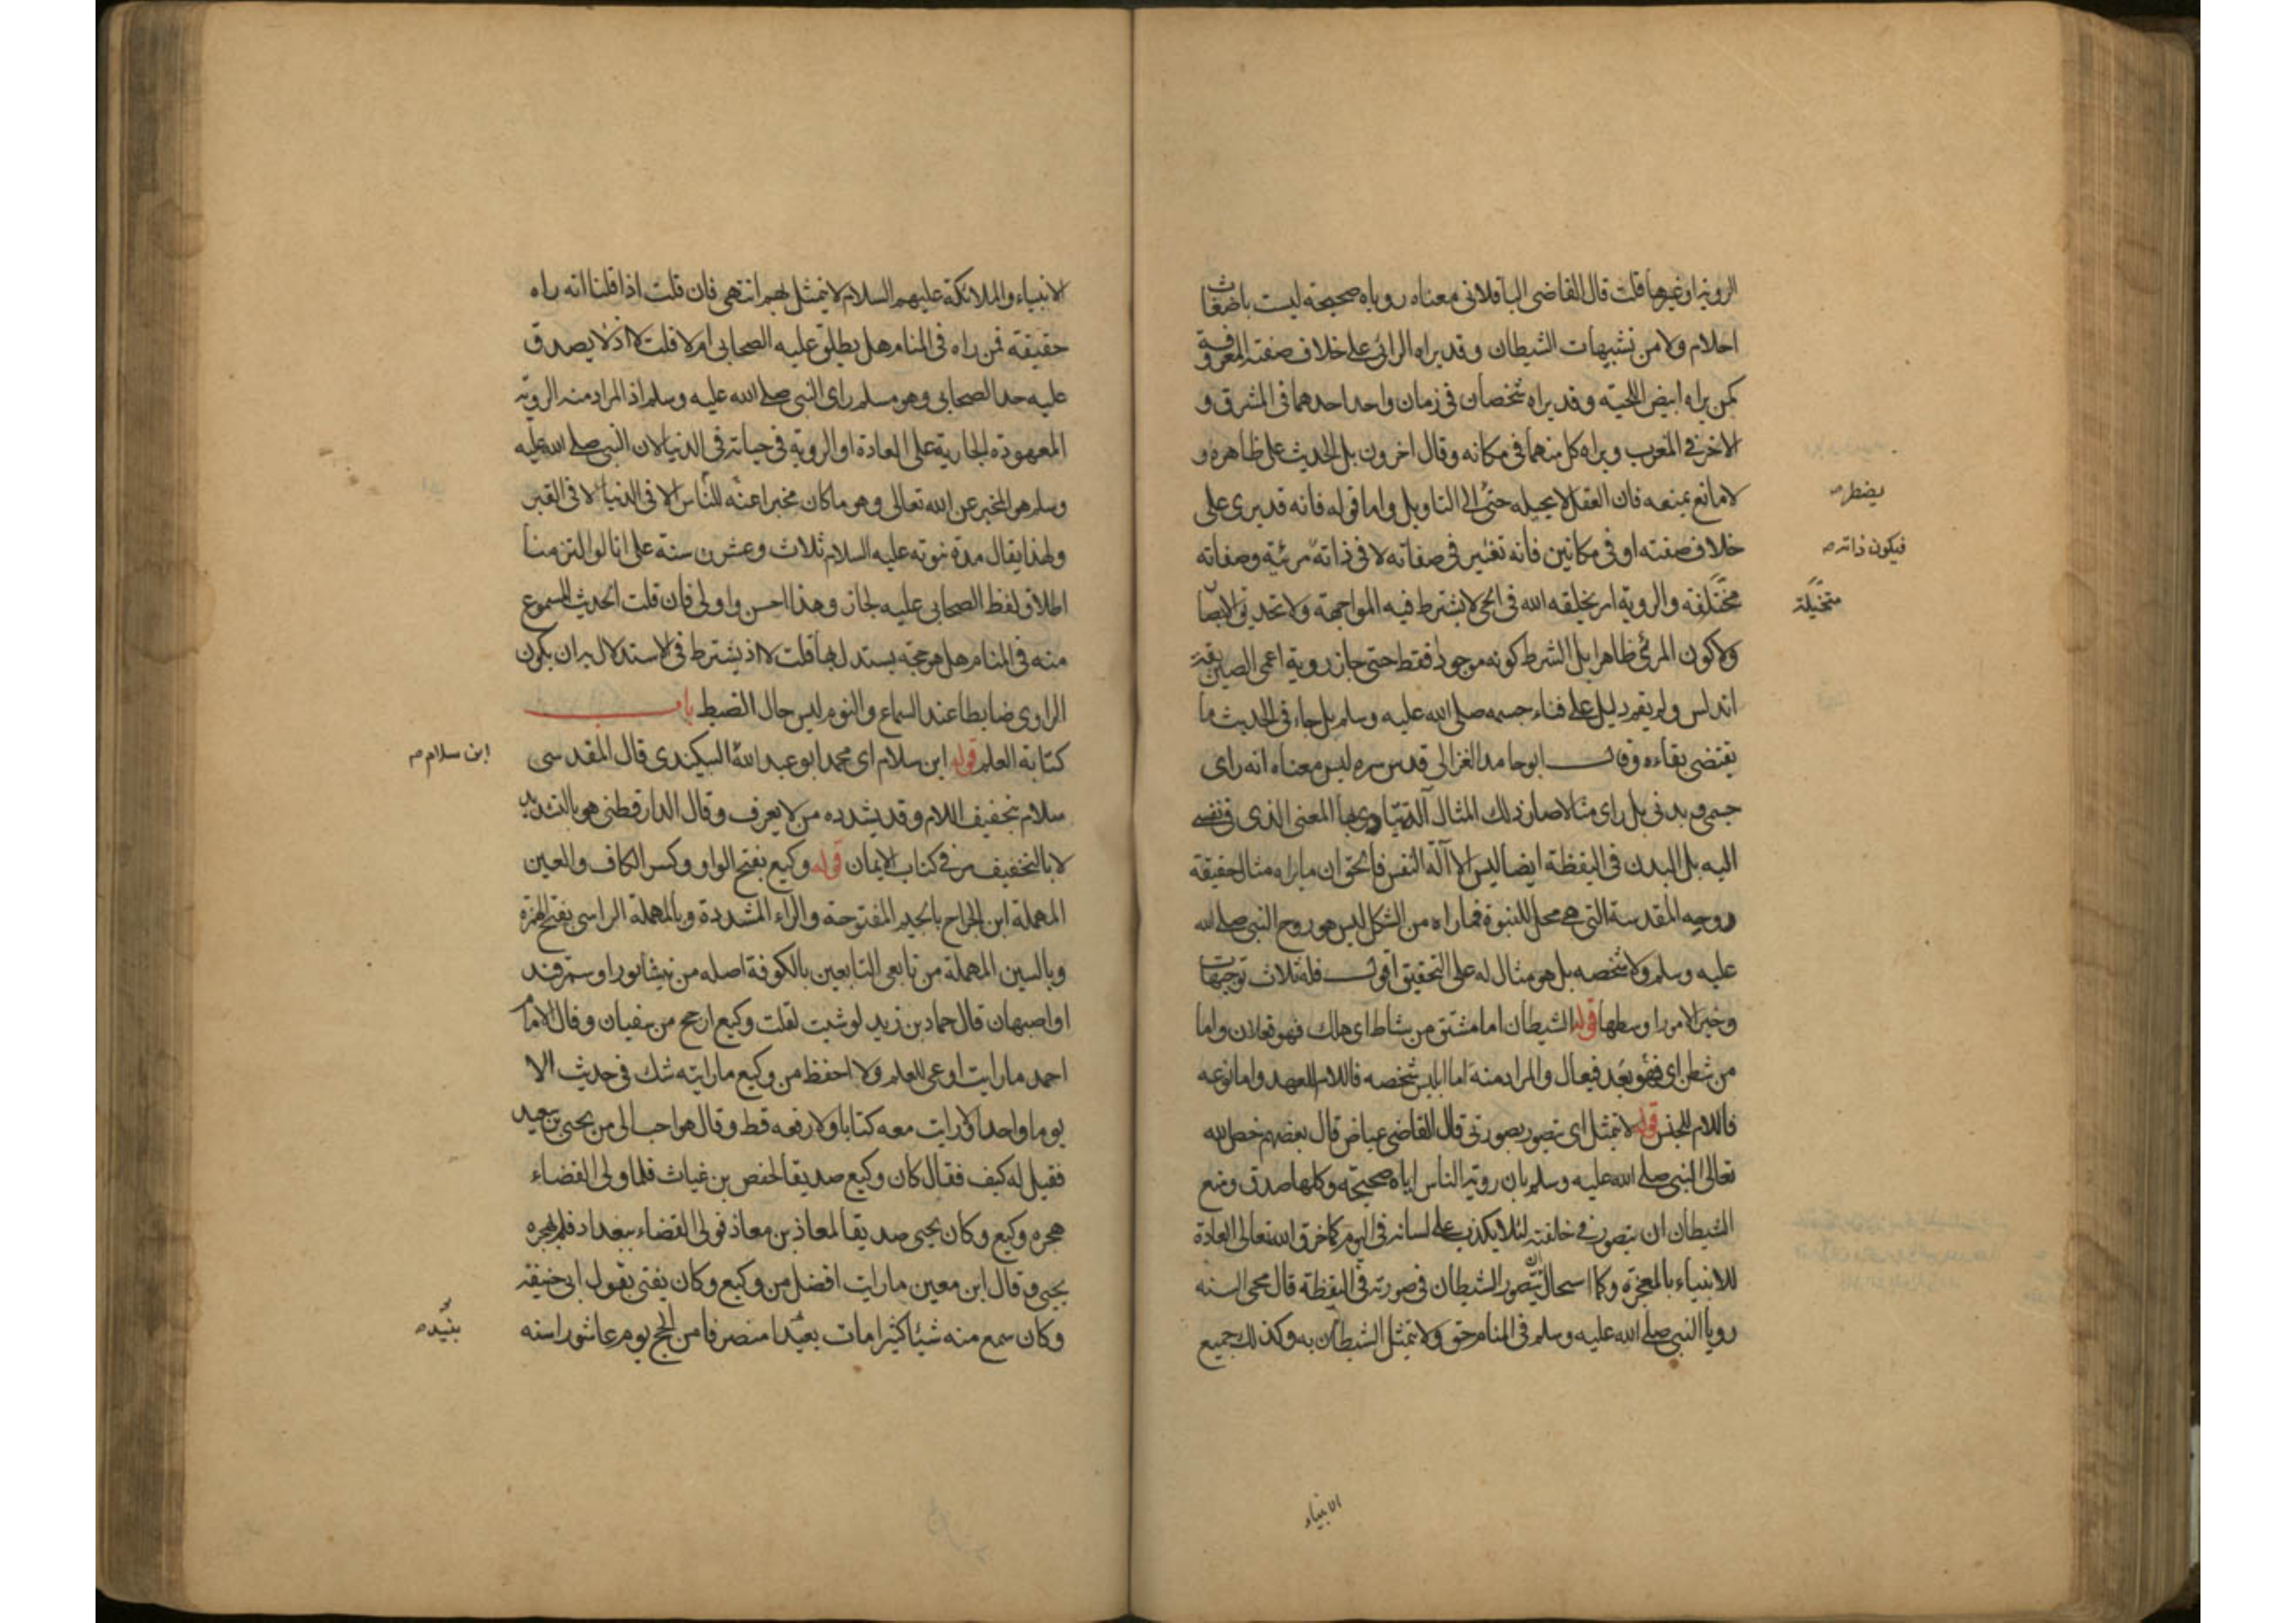 الروية او غيرها قلت قال القاضى الباقلانى معناه روياه صحيحة ليست باضغاث
احلام ولا من تشبيهات الشيطان وقد يراه الرائى على خلاف صفته المعروفة
كمن يراه ابيض اللحية وقد يراه شخصان فى زمان واحد احدهما فى المشرق و
الاخر فى المغرب ويراه كل منهما فى مكانه وقال اخرون بل الحديث على ظاهره و
لا مانع يمنعه فان العقل لا يحيله حتى الى التاويل واما قوله فانه قد يرى على
يضطر صح
خلاف صفته او فى مكانين فانه تغير فى صفاته لا فى ذاته مرئية وصفاته
فيكون ذاته صح
مختلفة والروية امر يخلقه الله فى الحى لا يشترط فيه المواجهة ولا تحديق الابصار
متخيلة
ولا كون المرئى ظاهرا بل الشرط كونه موجودا فقط حتى جاز روية اعمى الصين بقة
اندلس ولم يقم دليل على فناء جسمه صلى الله عليه وسلم بل جاء فى الحديث ما
يقتضى بقاءه وقال ابو حامد الغزالى قدس سره ليس معناه انه راى
جسمى وبدنى بل راى مثالا صار ذلك المثال آلة يتادى بها المعنى الذى فى نفسى
اليه بل البدن فى اليقظة ايضا ليس الا آلة النفس فالحق ان ما يراه مثال حقيقة
روحه المقدسة التى هى محل للنبوة فما راه من الشكل ليس هو روح النبى صلى الله
عليه وسلم ولا شخصه بل هو مثال له على التحقيق اقول فله ثلاث توجيهات
وخير الامور اوسطها قوله الشيطان اما مشتق من شاط اى هلك فهو فعلان واما
من شطن اى بعد فهو فيعال والمراد منه اما ابليس شخصه فاللام للعهد واما نوعه
فاللام للجنس قوله لا يتمثل اى يتصور بصورتى قال القاضى عياض قال بعضهم خص الله
تعالى النبى صلى الله عليه وسلم بان روية الناس اياه صحيحة وكلها صدق ومنع
الشيطان ان يتصور فى خلقته لئلا يكذب على لسانه فى النوم كما خرق الله تعالى العادة
للانبياء بالمعجزة وكما استحال ان يتصور الشيطان فى صورته فى اليقظة قال محى السنه
رويا النبى صلى الله عليه وسلم فى المنام حق ولا يتمثل الشيطان به وكذلك جميع
الانبياء
الانبياء والملائكة عليهم السلام لا يتمثل بهم انتهى فان قلت اذا قلنا انه راه
حقيقة فمن راه فى المنام هل يطلق عليه الصحابى ام لا قلت لا اذ لا يصدق
عليه حد الصحابى وهو مسلم راى النبى صلى الله عليه وسلم اذ المراد منه الروية
المعهودة الجارية على العادة او الروية فى حياته فى الدنيا لان النبى صلى الله عليه
وسلم هو المخبر عن الله تعالى وهو ما كان مخبرا عنه للناس الا فى الدنيا لا فى القبر
ولهذا يقال مدة نبوته عليه السلام ثلاث وعشرن سنة على انا لو التزمنا
اطلاق لفظ الصحابى عليه لجاز وهذا احسن واولى فان قلت الحديث المسموع
منه فى المنام هل هو حجة يستدل بها قلت لا اذ يشترط فى الاستدلال به ان يكون
الراوى ضابطا عند السماع والنوم ليس حال الضبط باب
كتابة العلم قوله ابن سلام اى محمد ابو عبد الله البيكندى قال المقدسى
ابن سلام صح
سلام بتخفيف اللام وقد يشدده من لا يعرف وقال الدارقطنى هو بالتشديد
لا بالتخفيف مر فى كتاب الايمان قوله وكيع بفتح الواو وكسر الكاف والعين
المهملة ابن الجراح بالجيم المفتوحة والراء المشددة وبالمهملة الراسى بفتح الهمزة
وبالسين المهملة من تابعى التابعين بالكوفة اصله من نيشابور او سمرقند
او اصبهان قال حماد بن زيد لو شيت لقلت وكيع ارجح من سفيان وقال الامام
احمد ما رايت اوعى للعلم ولا احفظ من وكيع ما رايته شك فى حديث الا
يوما واحدا ولا رايت معه كتابا ولا رقعه قط وقال هو احب الى من يحيى بن سعيد
فقيل له كيف فقال كان وكيع صديقا لحفص بن غياث فلما ولى القضاء
هجره وكيع وكان يحيى صديقا لمعاذ بن معاذ فولى القضاء ببغداد فلم يهجره
يحيى وقال ابن معين ما رايت افضل من وكيع وكان يفتى بقول ابى حنيفة
وكان سمع منه شيئا كثيرا مات بعيد منصرفا من الحج يوم عاشوراء سنه
بفيد صح